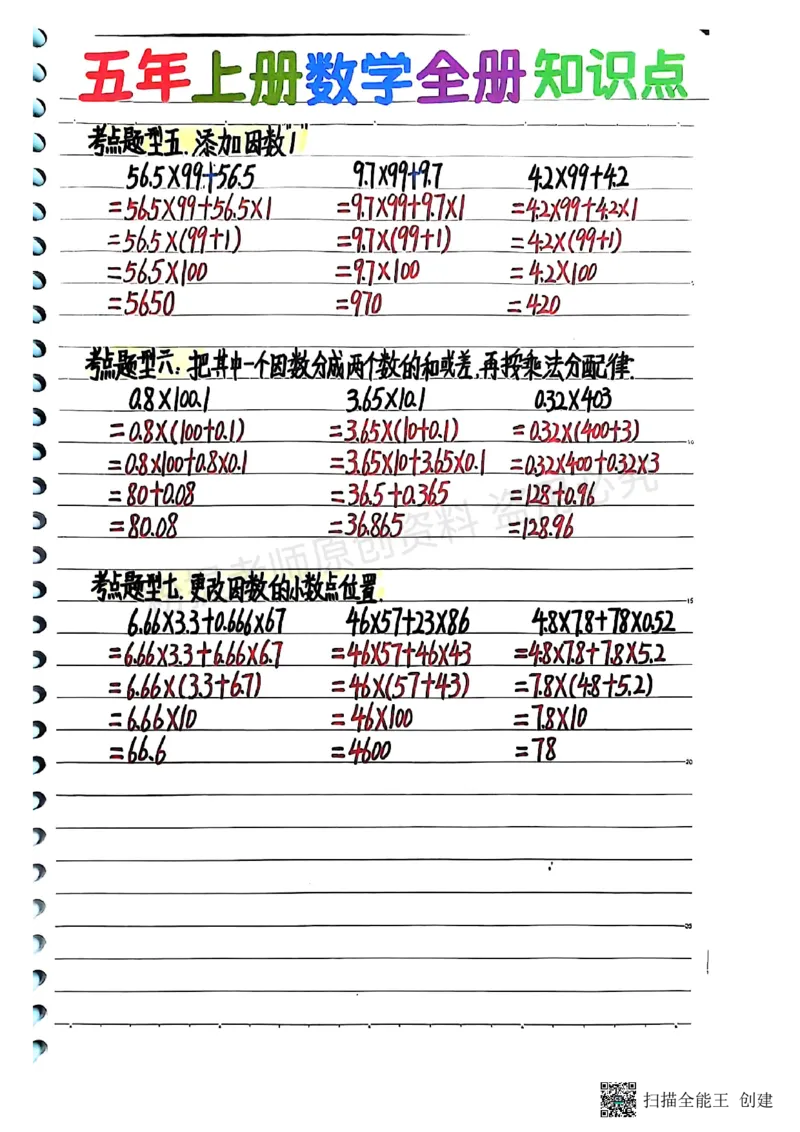 五年上册数学全册知识点
考点题型五.添加因数"1"
56.5×99+56.5 9.7×99+9.7 4.2×99+4.2
=56.5×99+56.5×1 =9.7×99+9.7×1 =4.2×99+4.2×1
=56.5×(99+1) =9.7×(99+1) =4.2×(99+1)
=56.5×100 =9.7×100 =4.2×100
=5650 =970 =420
考点题型六:把其中一个因数分成两个数的和或差,再按乘法分配律.
0.8×100.1 3.65×10.1 0.32×403
=0.8×(100+0.1) =3.65×(10+0.1) =0.32×(400+3)
=0.8×100+0.8×0.1 =3.65×10+3.65×0.1 =0.32×400+0.32×3
=80+0.08 =36.5+0.365 =128+0.96
=80.08 =36.865 =128.96
老师原创资料 盗用必究
考点题型七.更改因数的小数点位置.
6.66×3.3+0.666×67 46×57+23×86 4.8×7.8+78×0.52
=6.66×3.3+6.66×6.7 =46×57+46×43 =4.8×7.8+7.8×5.2
=6.66×(3.3+6.7) =46×(57+43) =7.8×(4.8+5.2)
=6.66×10 =46×100 =7.8×10
=66.6 =4600 =78
10
15
20
25
扫描全能王 创建